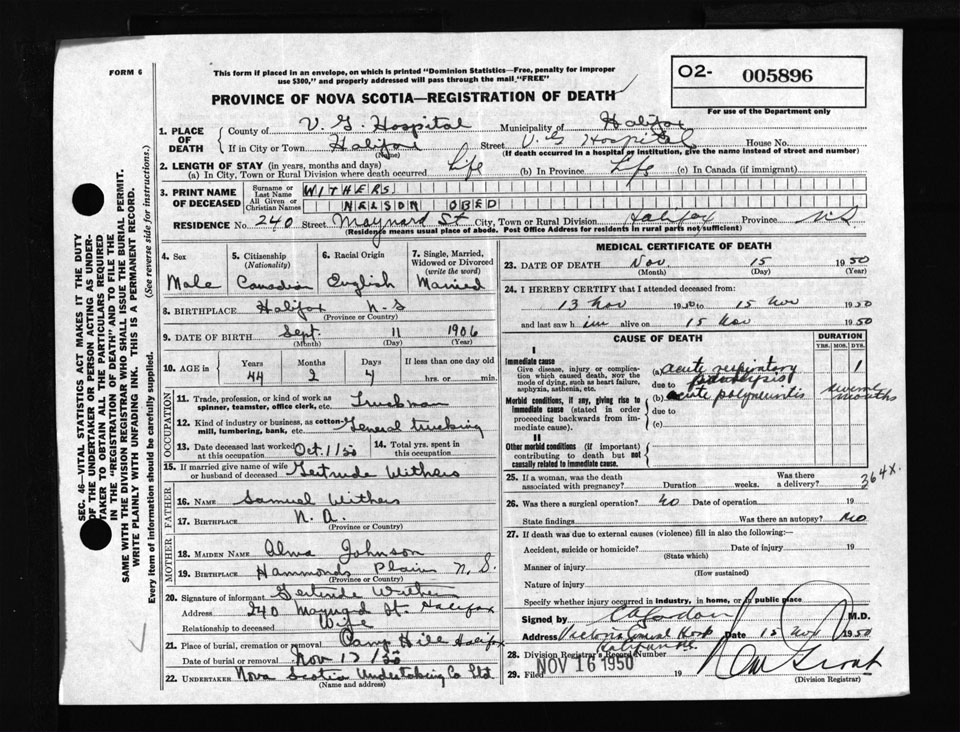 FORM 6
This form if placed in an envelope, on which is printed "Dominion Statistics—Free, penalty for improper
use $300," and properly addressed will pass through the mail "FREE"
O2- 005896
For use of the Department only
PROVINCE OF NOVA SCOTIA—REGISTRATION OF DEATH
1. PLACE OF DEATH
County of V. G. Hospital Municipality of Halifax
If in City or Town Halifax (Name) Street V. G. Hospital House No.
(If death occurred in a hospital or institution, give the name instead of street and number)
2. LENGTH OF STAY (in years, months and days)
(a) In City, Town or Rural Division where death occurred Life (b) In Province Life (c) In Canada (if immigrant)
3. PRINT NAME OF DECEASED
Surname or Last Name WITHERS
All Given or Christian Names NELSON OBED
RESIDENCE No. 240 Street Maynard St City, Town or Rural Division Halifax Province N.S
(Residence means usual place of abode. Post Office Address for residents in rural parts not sufficient)
4. Sex Male
5. Citizenship (Nationality) Canadian
6. Racial Origin English
7. Single, Married, Widowed or Divorced (write the word) Married
8. BIRTHPLACE Halifax N.S
(Province or Country)
9. DATE OF BIRTH Sept. 11 1906
(Month) (Day) (Year)
10. AGE in Years 44 Months 2 Days 4 If less than one day old hrs. or min.
OCCUPATION
11. Trade, profession, or kind of work as spinner, teamster, office clerk, etc. Truckman
12. Kind of industry or business, as cotton-mill, lumbering, bank, etc. General trucking
13. Date deceased last worked at this occupation Oct. 1/50
14. Total yrs. spent in this occupation
15. If married give name of wife or husband of deceased Gertrude Withers
FATHER
16. NAME Samuel Withers
17. BIRTHPLACE N.
(Province or Country)
MOTHER
18. MAIDEN NAME Alma Johnson
19. BIRTHPLACE Hammonds Plain N.S.
(Province or Country)
20. Signature of informant Gertrude Withers
Address 240 Maynard St. Halifax
Relationship to deceased Wife
21. Place of burial, cremation or removal Camp Hill Halifax
Date of burial or removal Nov 17/50
22. UNDERTAKER Nova Scotia Undertaking Co Ltd
(Name and address)
MEDICAL CERTIFICATE OF DEATH
23. DATE OF DEATH Nov 15 1950
(Month) (Day) (Year)
24. I HEREBY CERTIFY that I attended deceased from:
13 Nov 1950 to 15 Nov 1950
and last saw him alive on 15 Nov 1950
CAUSE OF DEATH
DURATION
YRS. MOS. DYS.
I
Immediate cause
Give disease, injury or complication which caused death, NOT the mode of dying, such as heart failure, asphyxia, asthenia, etc.
(a) acute respiratory paralysis 1
due to
Morbid conditions, if any, giving rise to immediate cause (stated in order proceeding backwards from immediate cause).
(b) acute polyneuritis several months
due to
(c)
II
Other morbid conditions (if important) contributing to death but not causally related to immediate cause.
364x.
25. If a woman, was the death associated with pregnancy? Duration weeks. Was there a delivery?
26. Was there a surgical operation? No Date of operation 19
State findings Was there an autopsy? No
27. If death was due to external causes (violence) fill in also the following:
Accident, suicide or homicide? Date of injury 19
(State which)
Manner of injury
(How sustained)
Nature of injury
Specify whether injury occurred in industry, in home, or in public place
Signed by M.D.
Address Victoria General Hosp Date 15 Nov 1950
Halifax N.S.
28. Division Registrar's Record Number
29. Filed NOV 16 1950 19
(Division Registrar)
SEC. 46—VITAL STATISTICS ACT MAKES IT THE DUTY
OF THE UNDERTAKER OR PERSON ACTING AS UNDER-
TAKER TO OBTAIN ALL THE PARTICULARS REQUIRED
IN THE "REGISTRATION OF DEATH" AND TO FILE THE
SAME WITH THE DIVISION REGISTRAR WHO SHALL ISSUE THE BURIAL PERMIT.
WRITE PLAINLY WITH UNFADING INK. THIS IS A PERMANENT RECORD.
Every item of information should be carefully supplied. (See reverse side for instructions.)